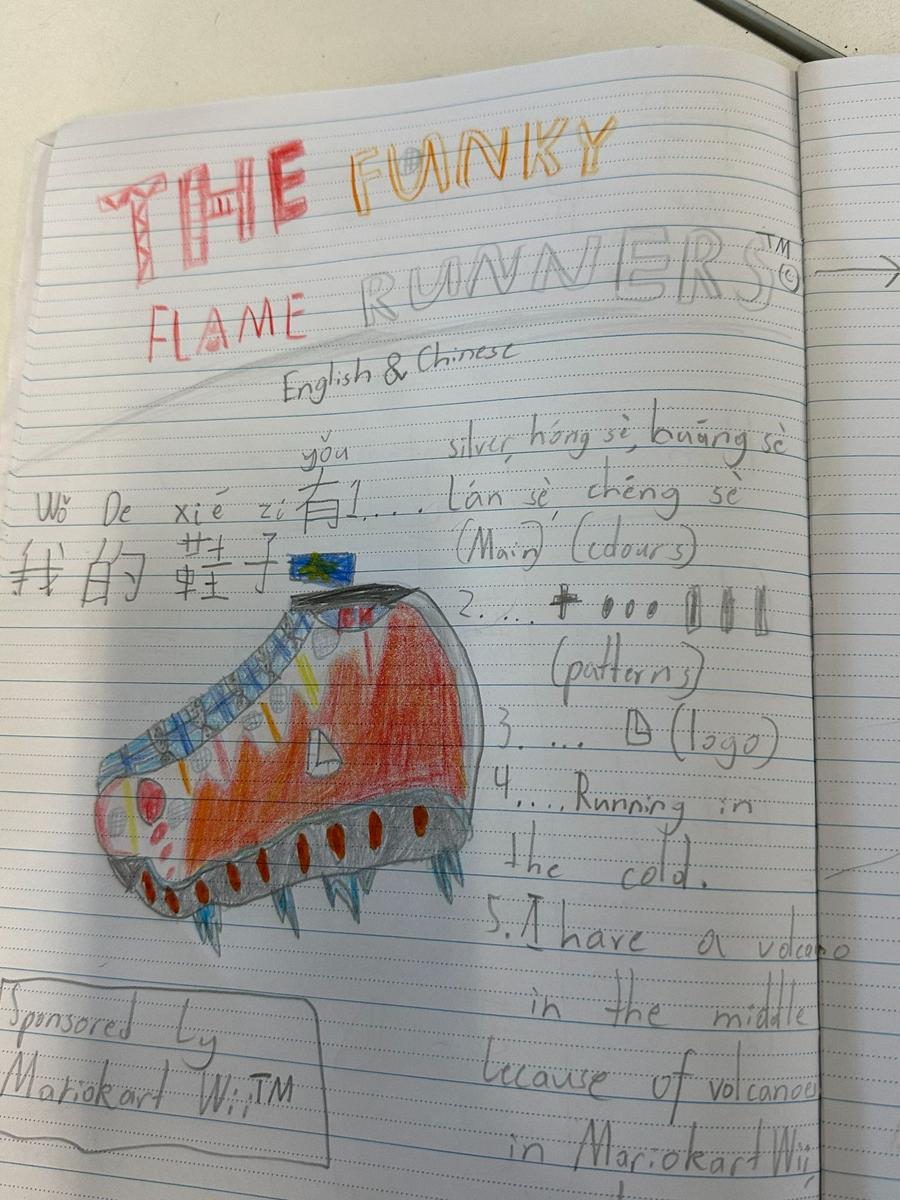 THE FUNKY
FLAME RUNNERS™ ©
English & Chinese
yǒu
Wǒ De xié zi 有
我的鞋子
1.... silver, hóng sè, huáng sè
lán sè, chéng sè
(Main) (colours)
2. ....
(patterns)
3. ... (logo)
4.... Running in
the cold.
5. I have a volcano
in the middle
because of volcanoes
in Mariokart Wii
Sponsored by
Mariokart Wii™